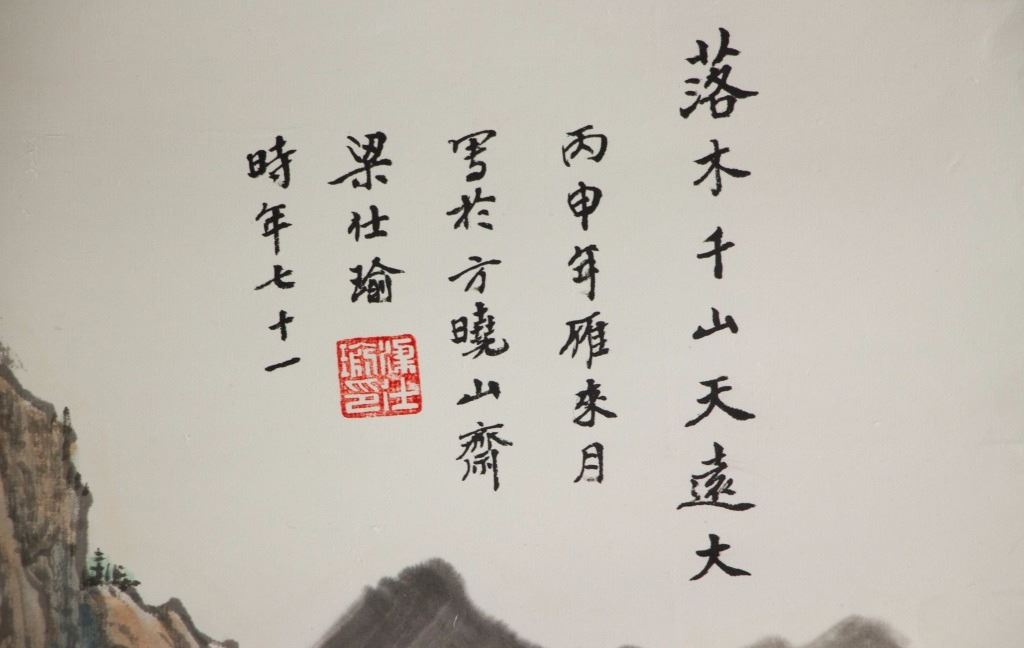 落木千山天遠大
丙申年雁來月
寫於方曉山齋
梁仕瑜
時年七十一
梁仕瑜印